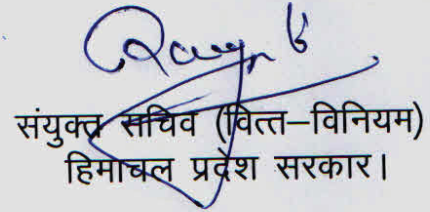 संयुक्त सचिव (वित्त–विनियम)
हिमाचल प्रदेश सरकार।